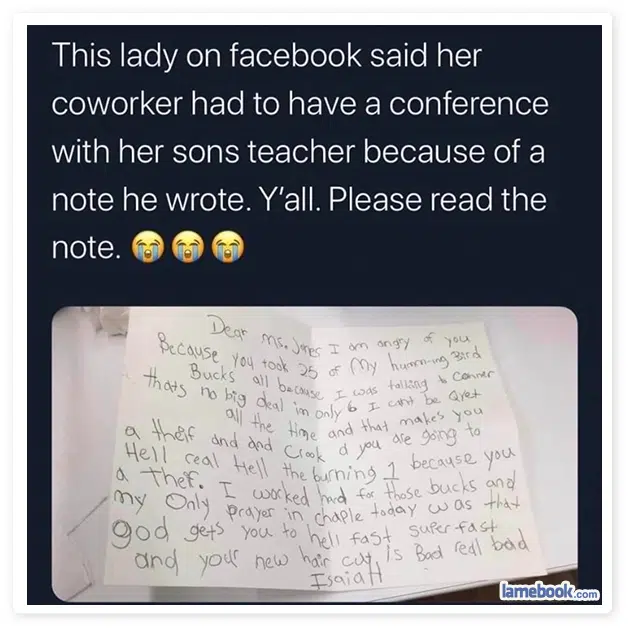 This lady on facebook said her
coworker had to have a conference
with her sons teacher because of a
note he wrote. Y'all. Please read the
note. 😭😭😭
Dear Ms. Jones I am angry of you
Because you took 25 of My humming Bird
Bucks all because I was talking to Conner
thats no big deal im only 6 I cant be Qyet
all the time and that makes you
a theif and and Crook d you are going to
Hell real Hell the burning 1 because you
a Thef. I worked hard for those bucks and
my Only prayer in chaple today was that
god gets you to hell fast super fast
and your new hair cut is Bad redl bad
IsaiaH
lamebook.com